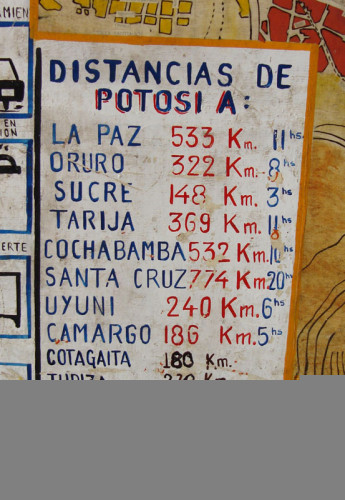 DISTANCIAS DE
POTOSI A:
LA PAZ 533 Km. 11 hs
ORURO 322 Km. 8 hs
SUCRE 148 Km. 3 hs
TARIJA 369 Km. 11 hs
COCHABAMBA 532 Km. 10 hs
SANTA CRUZ 774 Km 20 hs
UYUNI 240 Km. 6 hs
CAMARGO 186 Km. 5 hs
COTAGAITA 180 Km.
EN